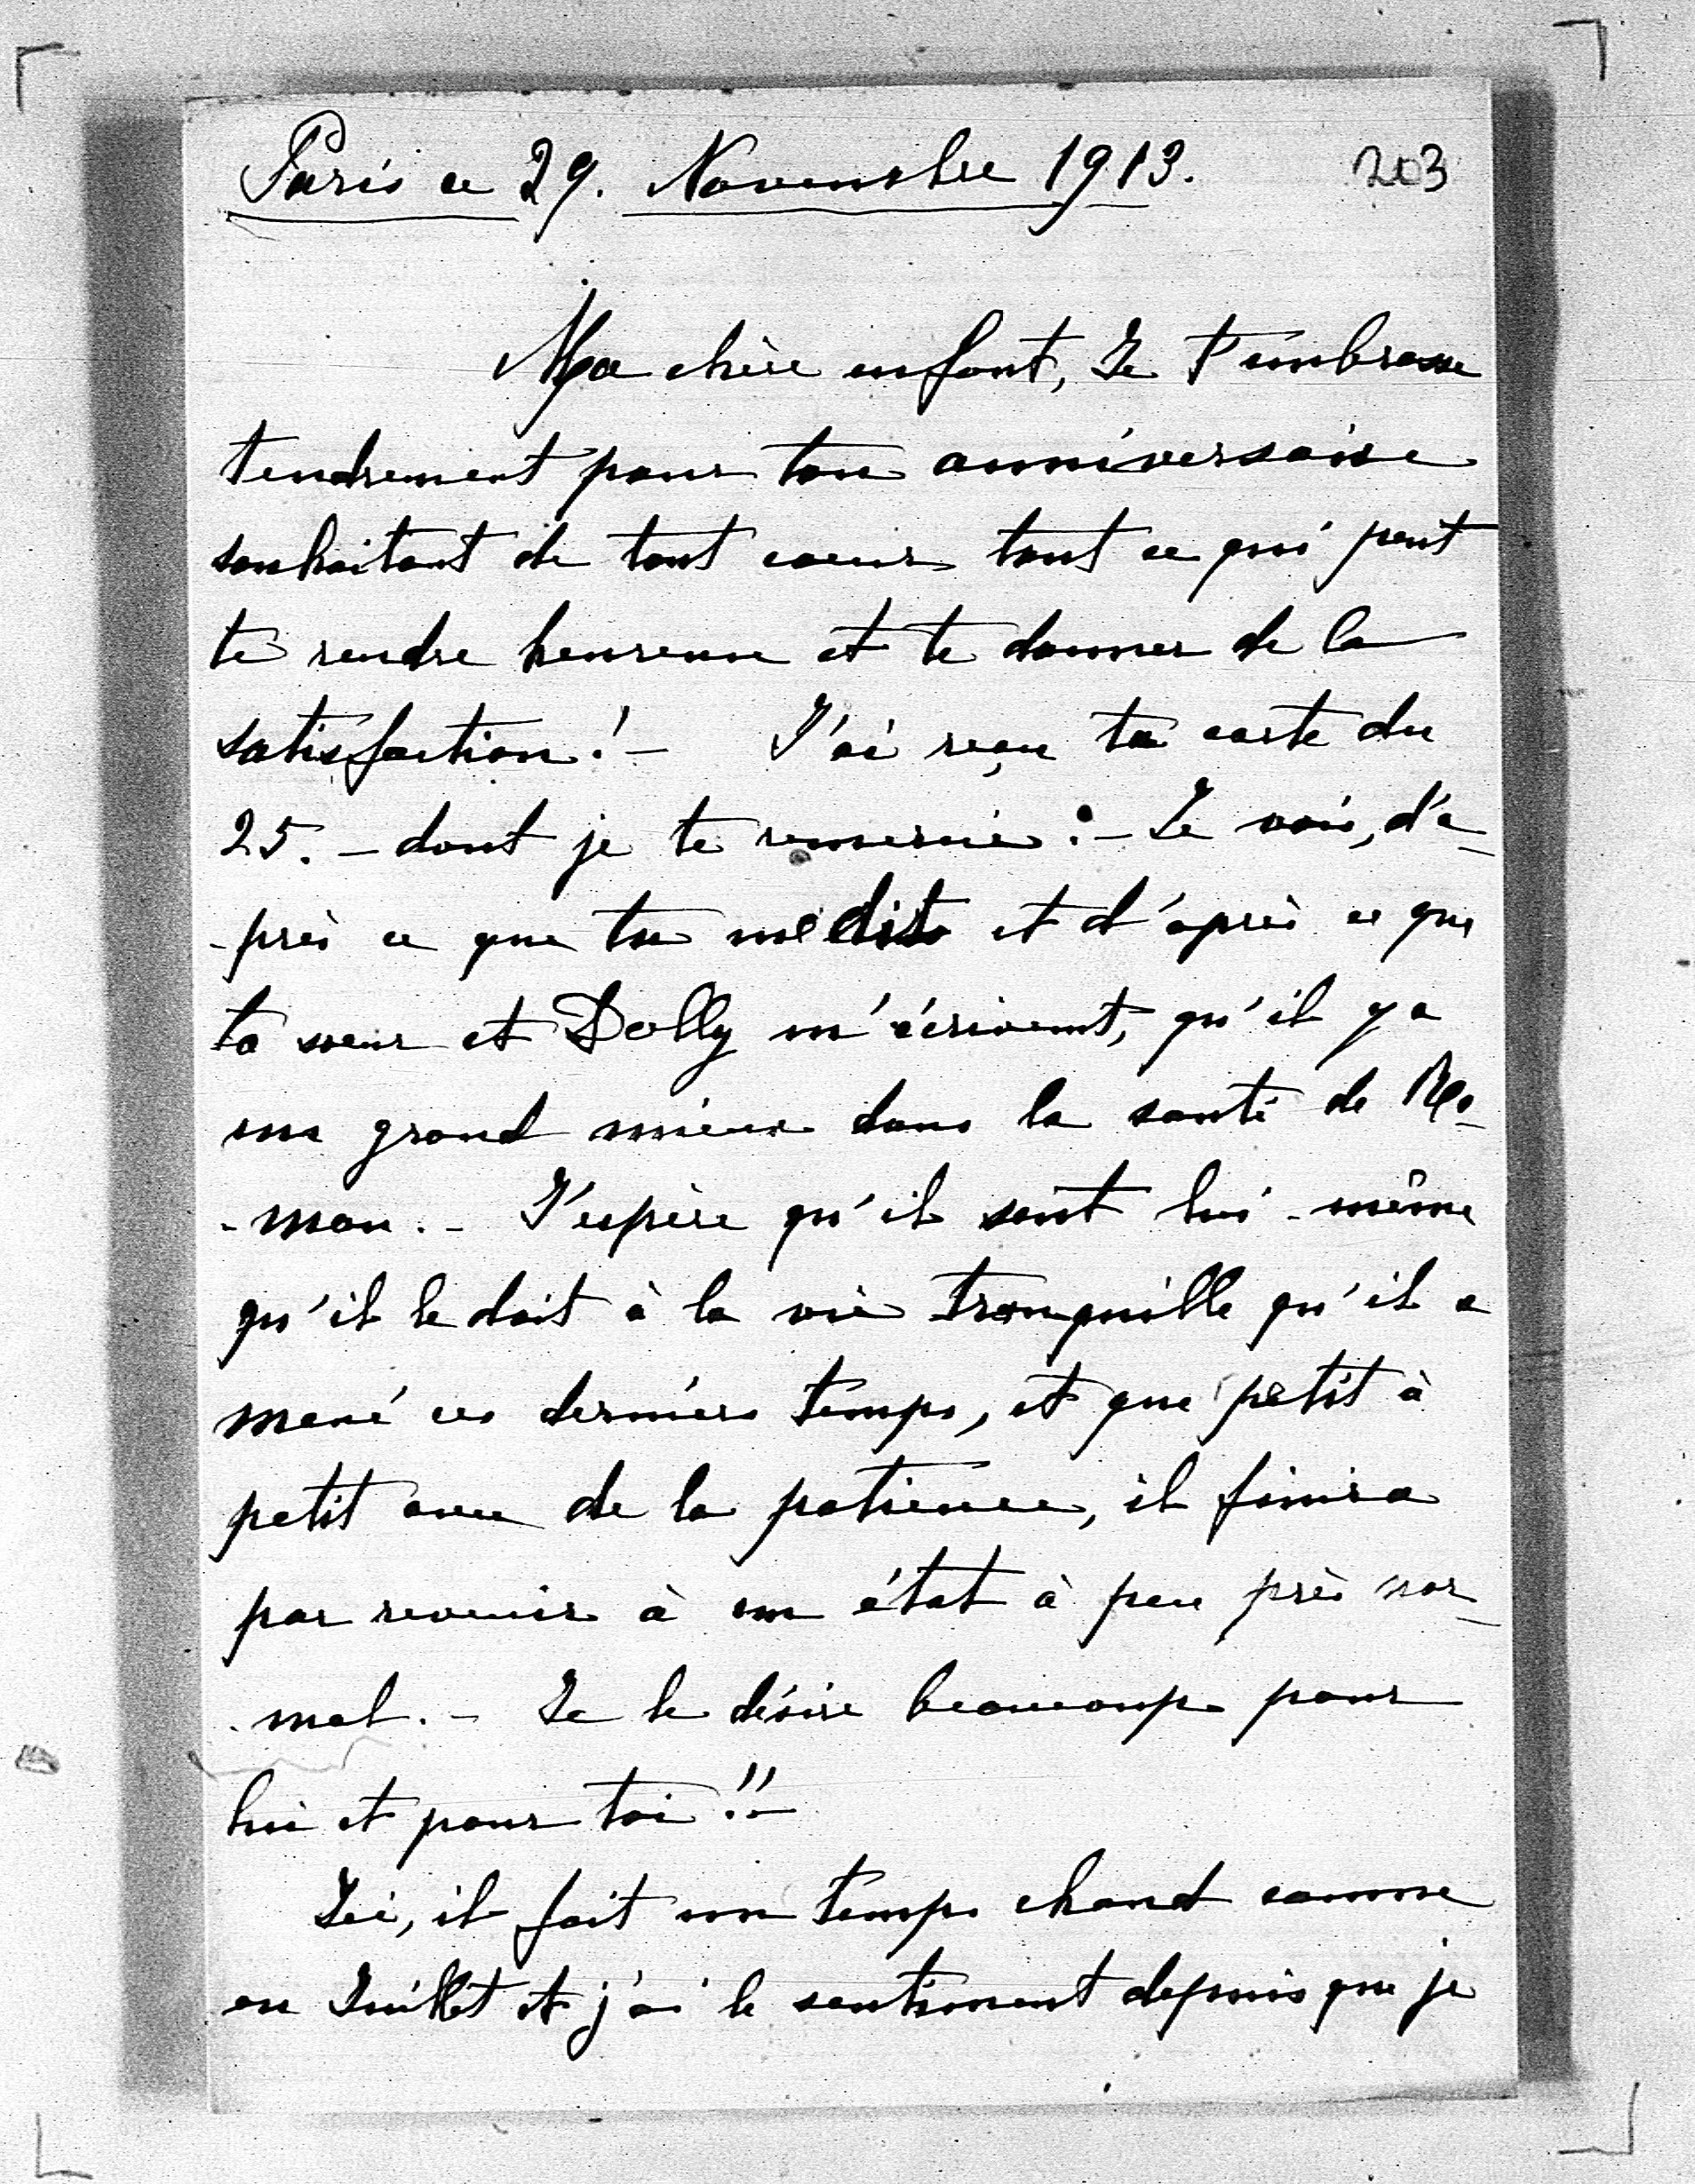 Paris ce 29. Novembre 1913. 203
Ma chère enfant, Je t'embrasse
tendrement pour ton anniversaire
souhaitant de tout coeur tout ce qui peut
te rendre heureuse et te donner de la
satisfaction! - J'ai reçu ta carte du
25. - dont je te remercie: - Je vois, d'a-
-près ce que tu me dis et d'après ce que
ta soeur et Dolly m'écrivent, qu'il y a
un grand mieux dans la santé de Ma-
-man. - J'espère qu'il sent lui-même
qu'il le doit à la vie tranquille qu'il a
mené ces derniers temps, et que petit à
petit avec de la patience, il finira
par revenir à un état à peu près nor-
-mal. - Je le désire beaucoup pour
lui et pour toi!! -
Ici, il fait un temps chaud comme
en Juillet et j'ai le sentiment depuis que je